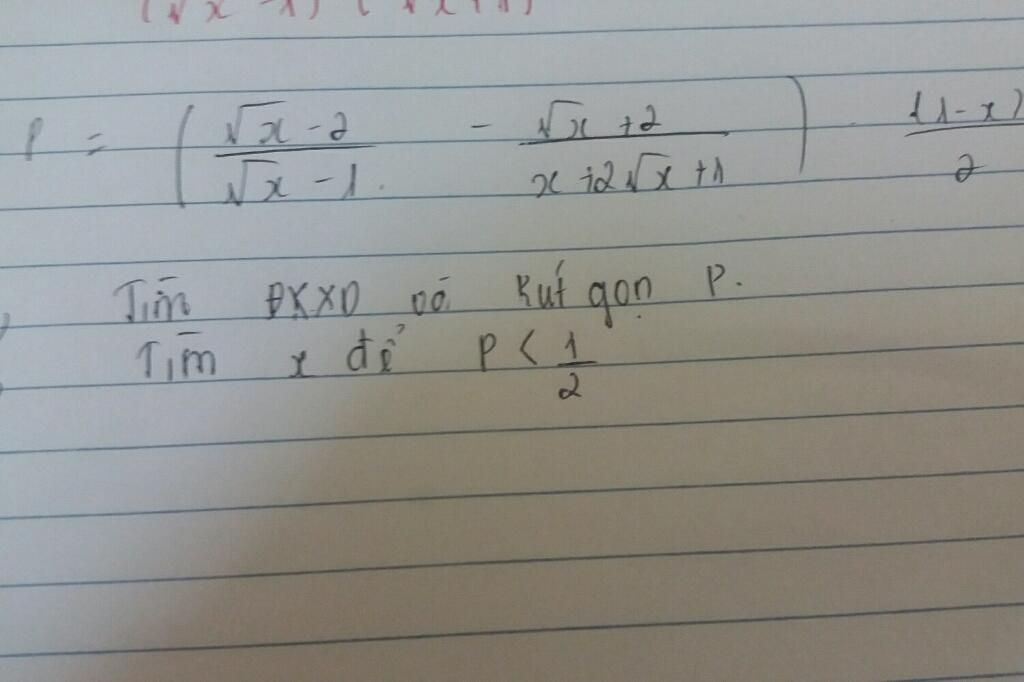 (√x - 1) (√x + 1)
P = ( (√x - 2)/(√x - 1) - (√x + 2)/(x + 2√x + 1) ) . (1 - x)/2
Tìm ĐKXD và Rút gọn P.
Tìm x để P < 1/2